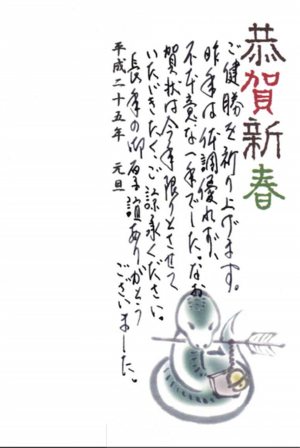 恭賀新春
ご健勝を祈り上げます。
昨年は体調優れず、
不本意な一年でした。なお
賀状は今年限りとさせて
いただきたくご諒承ください。
長年の御厚誼ありがとう
ございました。
平成二十五年 元旦